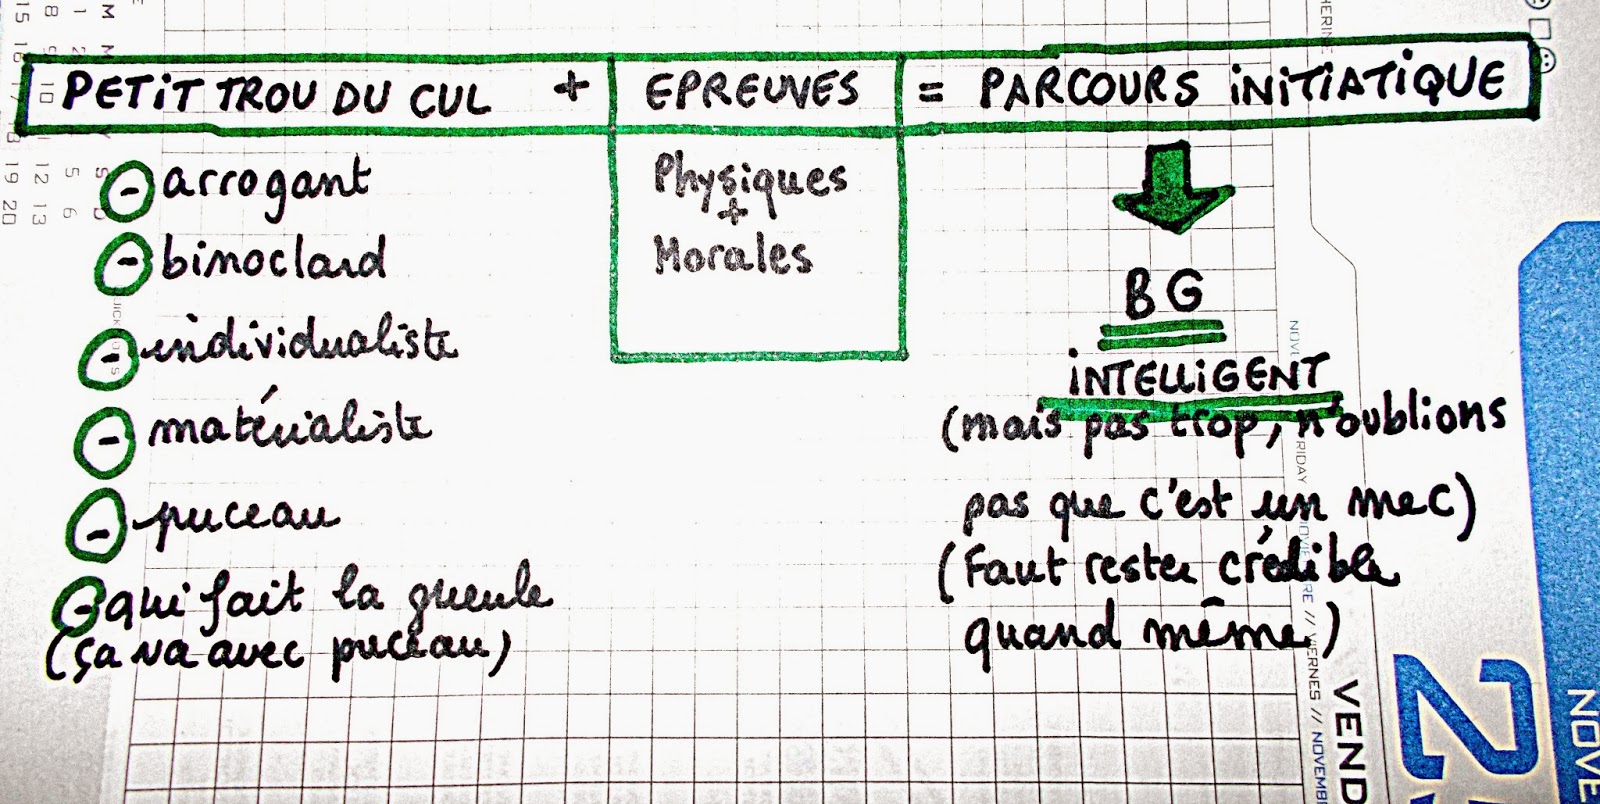 PETIT TROU DU CUL + EPREUVES = PARCOURS INITIATIQUE
- arrogant
- binoclard
- individualiste
- matérialiste
- puceau
- qui fait la gueule
(ça va avec puceau)
Physiques
+
Morales
BG
INTELLIGENT
(mais pas trop, n'oublions
pas que c'est un mec)
(Faut rester crédible
quand même)
M M
S D
15 8 1
16 9 2
10
12 5
13 6
19 20
NOVE
FRIDAY
VERNES // NOVEMB
VEND
2
NOVE